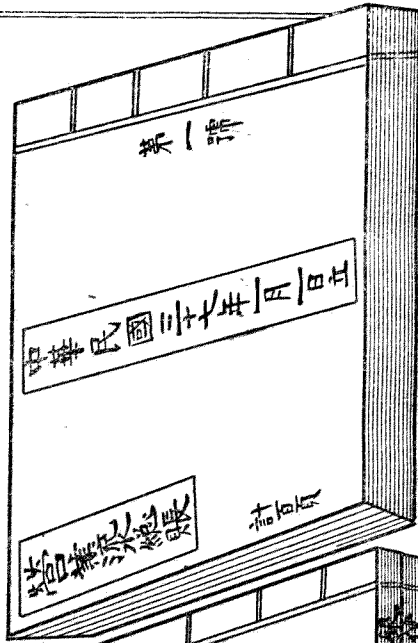 第一號
中華民國二十七年一月一日立
營業總賬
計百頁